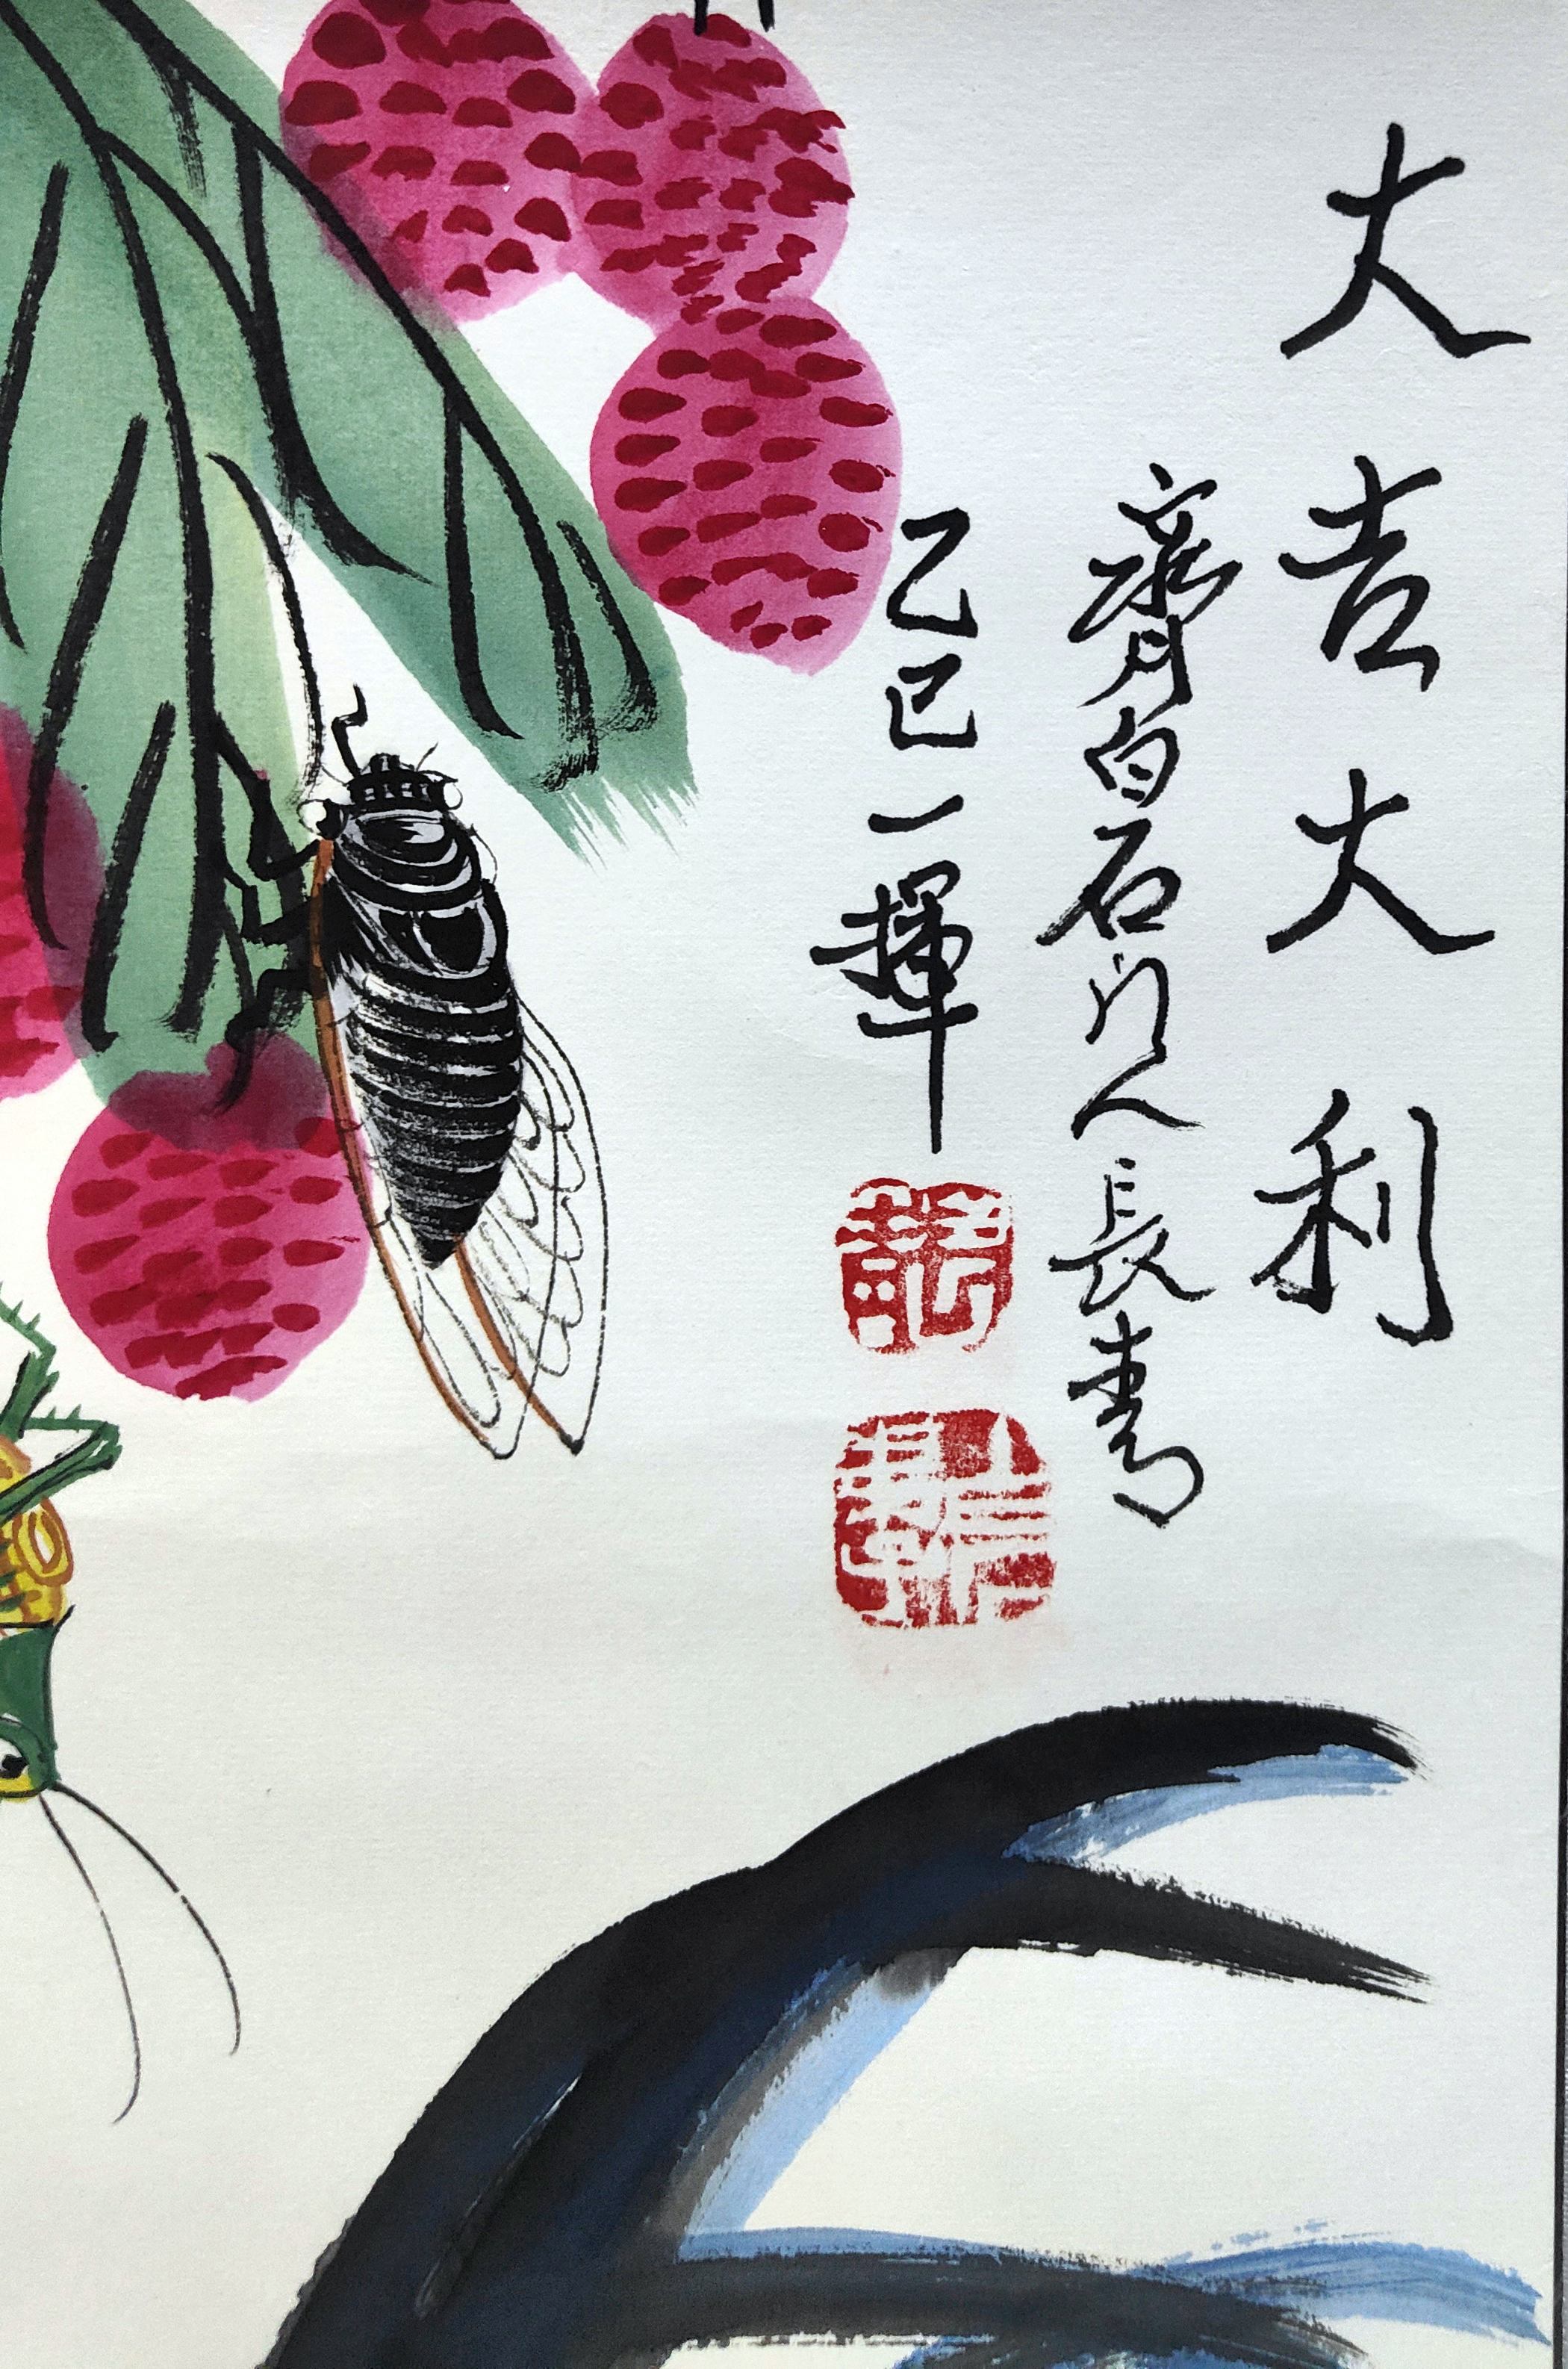 大吉大利
齊白石门人長青
乙巳一揮